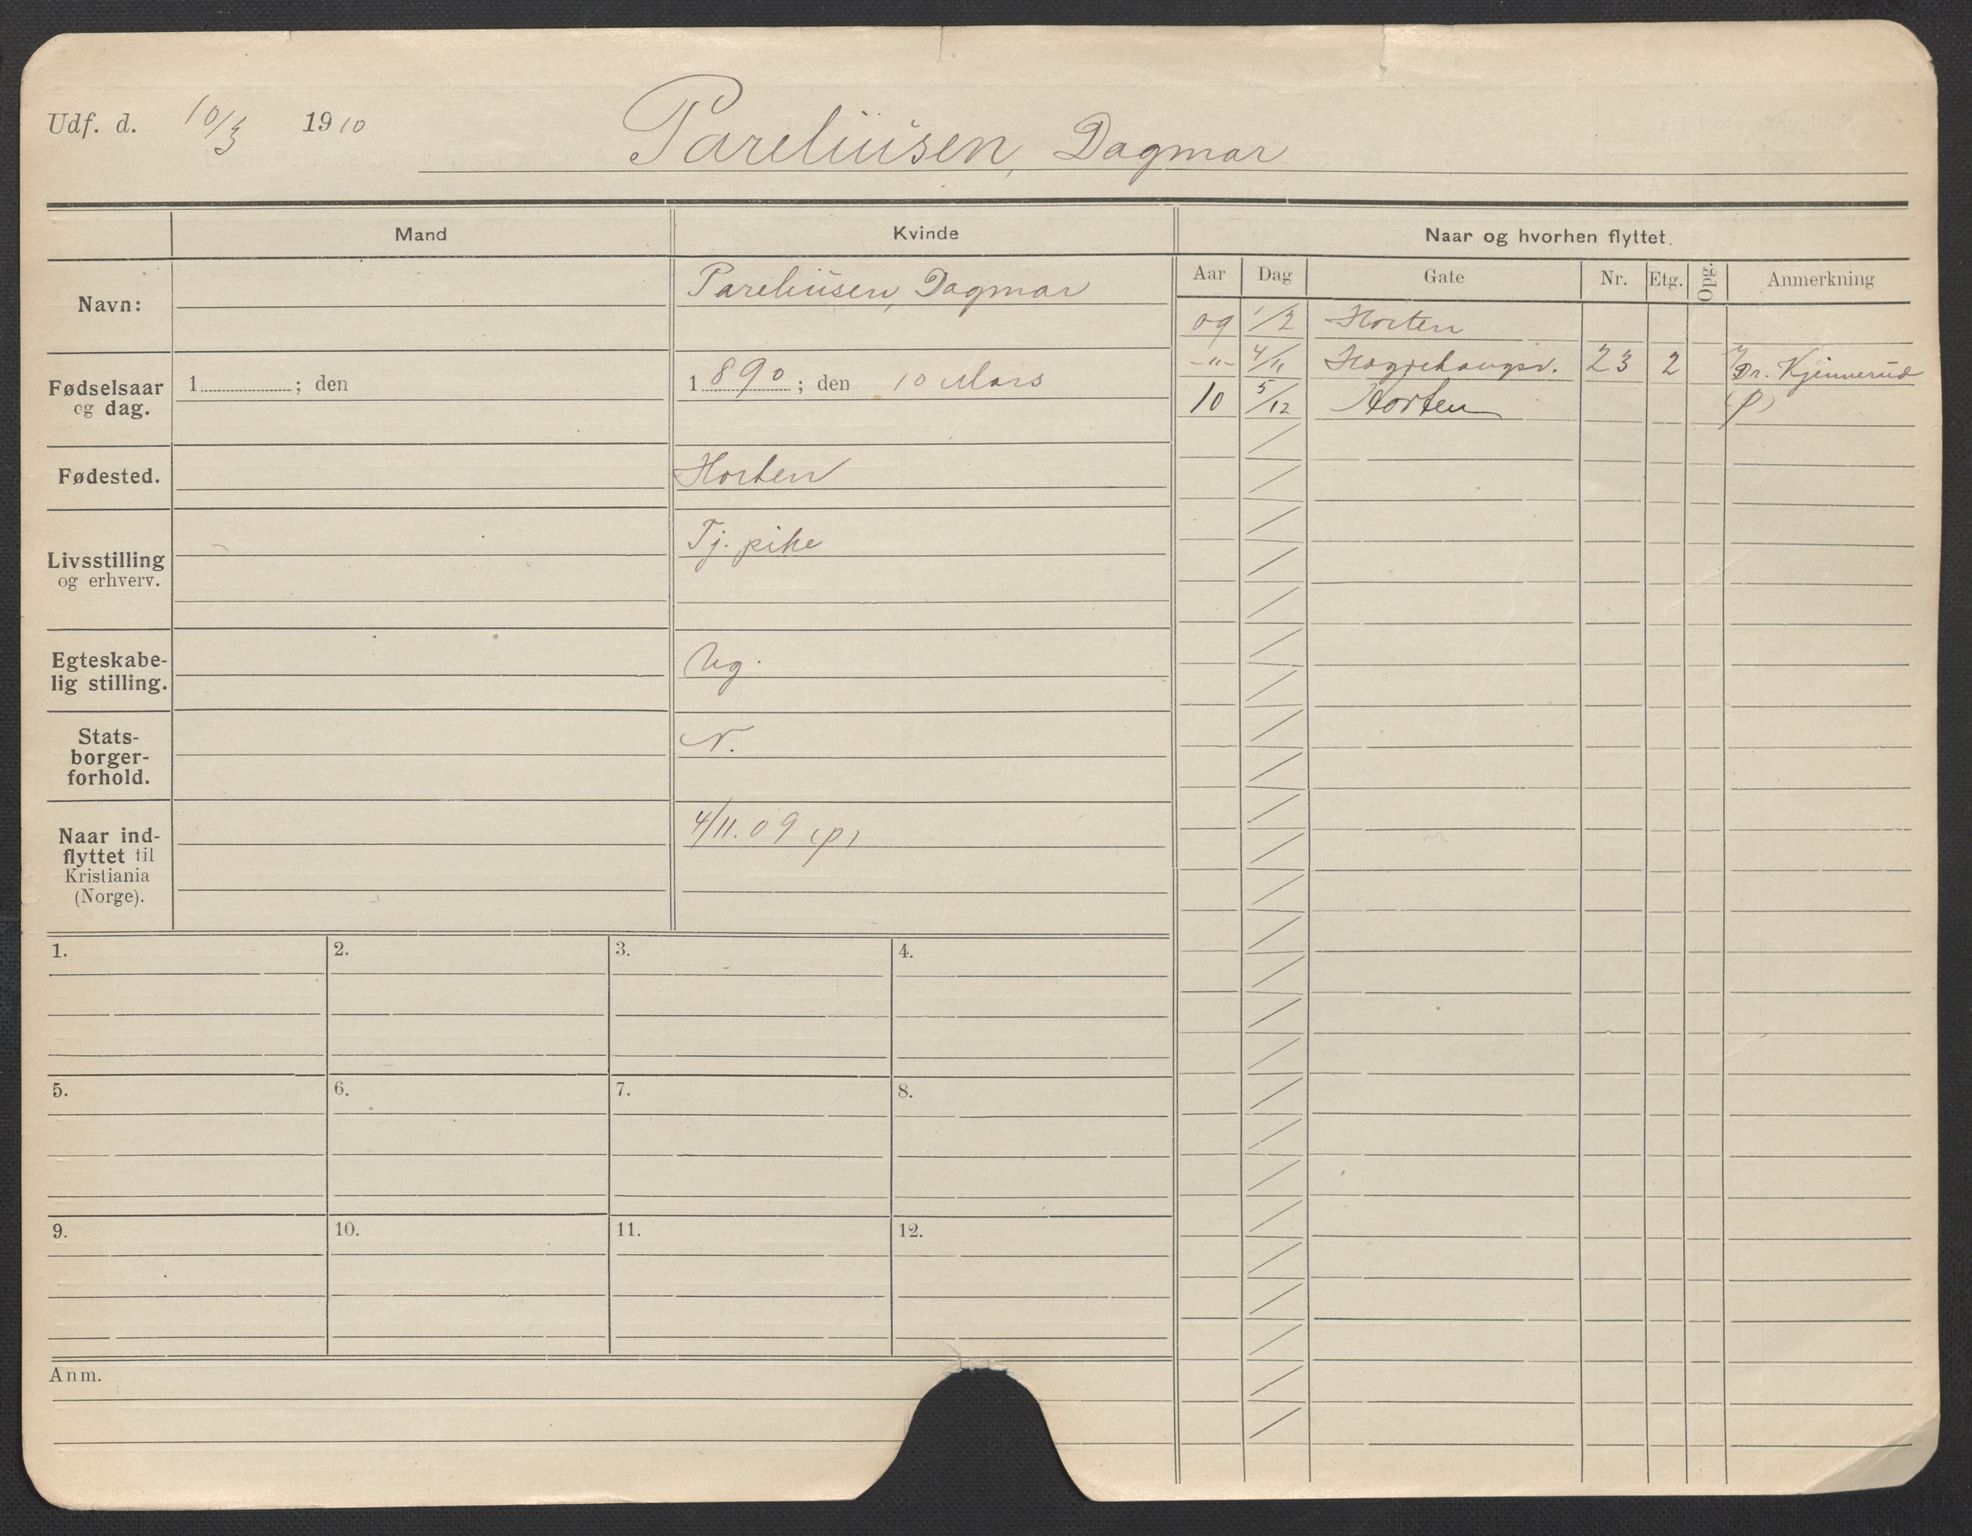 Udf. d. 10/3 1910 Pareliusen, Dagmar
Mand Kvinde Naar og hvorhen flyttet.
Aar Dag Gate Nr. Etg. Opg. Anmerkning
Navn: Pareliusen, Dagmar
09 1/2 Horten
-"- 4/11 23 2 Dr. Kjennerud
10 5/12 Horten (p)
Fødselsaar og dag. 1 ; den 1890; den 10 Mars
Fødested. Horten
Livsstilling og erhverv. Tj. pike
Egteskabe-
lig stilling. Ug.
Stats-
borger-
forhold. N.
Naar ind-
flyttet til
Kristiania
(Norge). 4/11.09 (p)
1. 2. 3. 4.
5. 6. 7. 8.
9. 10. 11. 12.
Anm.